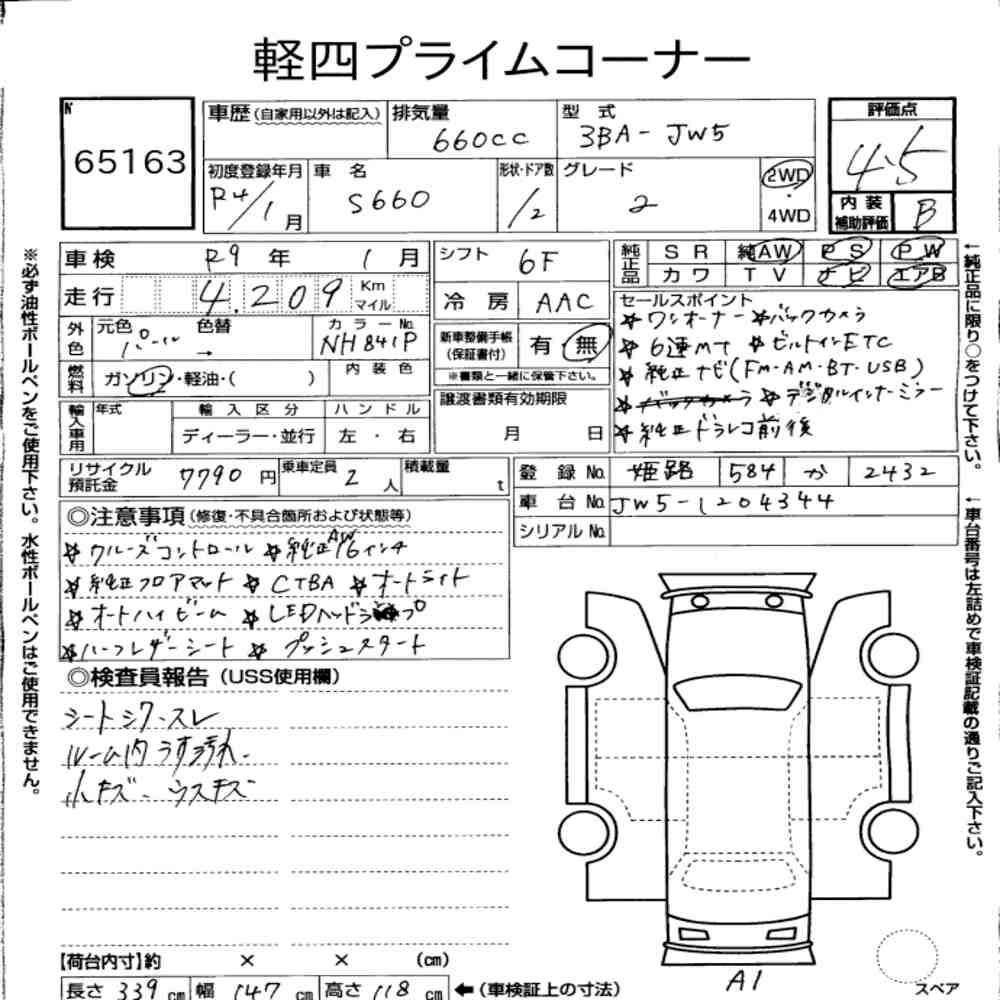 軽四プライムコーナー
№ 65163
車歴(自家用以外は記入)
排気量 660cc
型式 3BA-JW5
評価点 4.5
初度登録年月 R4/1月
車名 S660
形状・ドア数 /2
グレード 2
2WD・4WD
内装補助評価 B
車検 R9年 1月
シフト 6F
純正品 SR 純AW PS PW
カワ TV ナビ エアB
走行 4.209 Km マイル
冷房 AAC
外色 元色 パール 色替 →
カラーNo. NH841P
新車整備手帳(保証書付) 有 無
※書類と一緒に保管下さい。
燃料 ガソリン・軽油・( )
内装色
セールスポイント
☆ワンオーナー ☆バックカメラ
☆6速MT ☆ビルトインETC
☆純正ナビ(FM・AM・BT・USB)
☆バックカメラ ☆デジタルインナーミラー
☆純正ドラレコ前後
輸入車用 年式 輸入区分 ハンドル
ディーラー・並行 左・右
譲渡書類有効期限
月 日
リサイクル預託金 7790円
乗車定員 2人
積載量 t
登録No. 姫路 584 か 2432
車台No. JW5-1204344
シリアルNo.
◎注意事項(修復・不具合箇所および状態等)
☆クルーズコントロール ☆純正AW16インチ
☆純正フロアマット ☆CTBA ☆オートライト
☆オートハイビーム ☆LEDヘッドランプ
☆ハーフレザーシート ☆プッシュスタート
◎検査員報告(USS使用欄)
シートシワ・スレ
ルーム内うす汚れ
小キズ・ウスキズ
【荷台内寸】約 × × (cm)
長さ 339cm 幅 147cm 高さ 118cm ←(車検証上の寸法)
A1
スペア
※必ず油性ボールペンをご使用下さい。水性ボールペンはご使用できません。
←純正品に限り○をつけて下さい。
←車台番号は左詰めで車検証記載の通りご記入下さい。